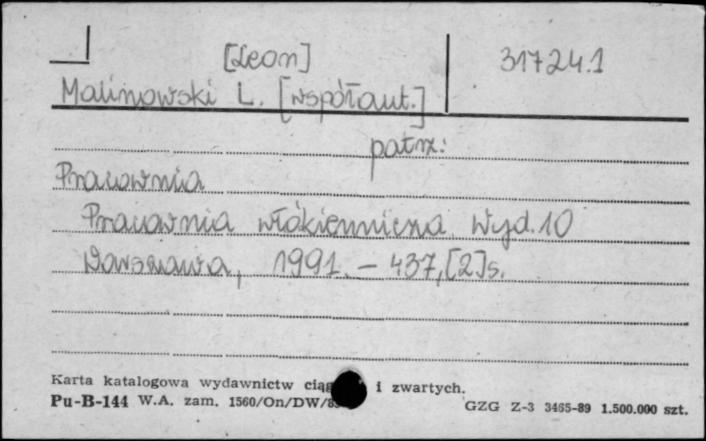 [Leon] 317241
Malinowski L. [współaut.]
patrz:
Pracownia
Pracownia włókiennicza. Wyd. 10
Warszawa, 1991. – 437, [2] s.
Karta katalogowa wydawnictw i zwartych.
Pu-B-144 W.A. zam. 1560/On/DW/ GZG Z-3 3465-89 1.500.000 szt.